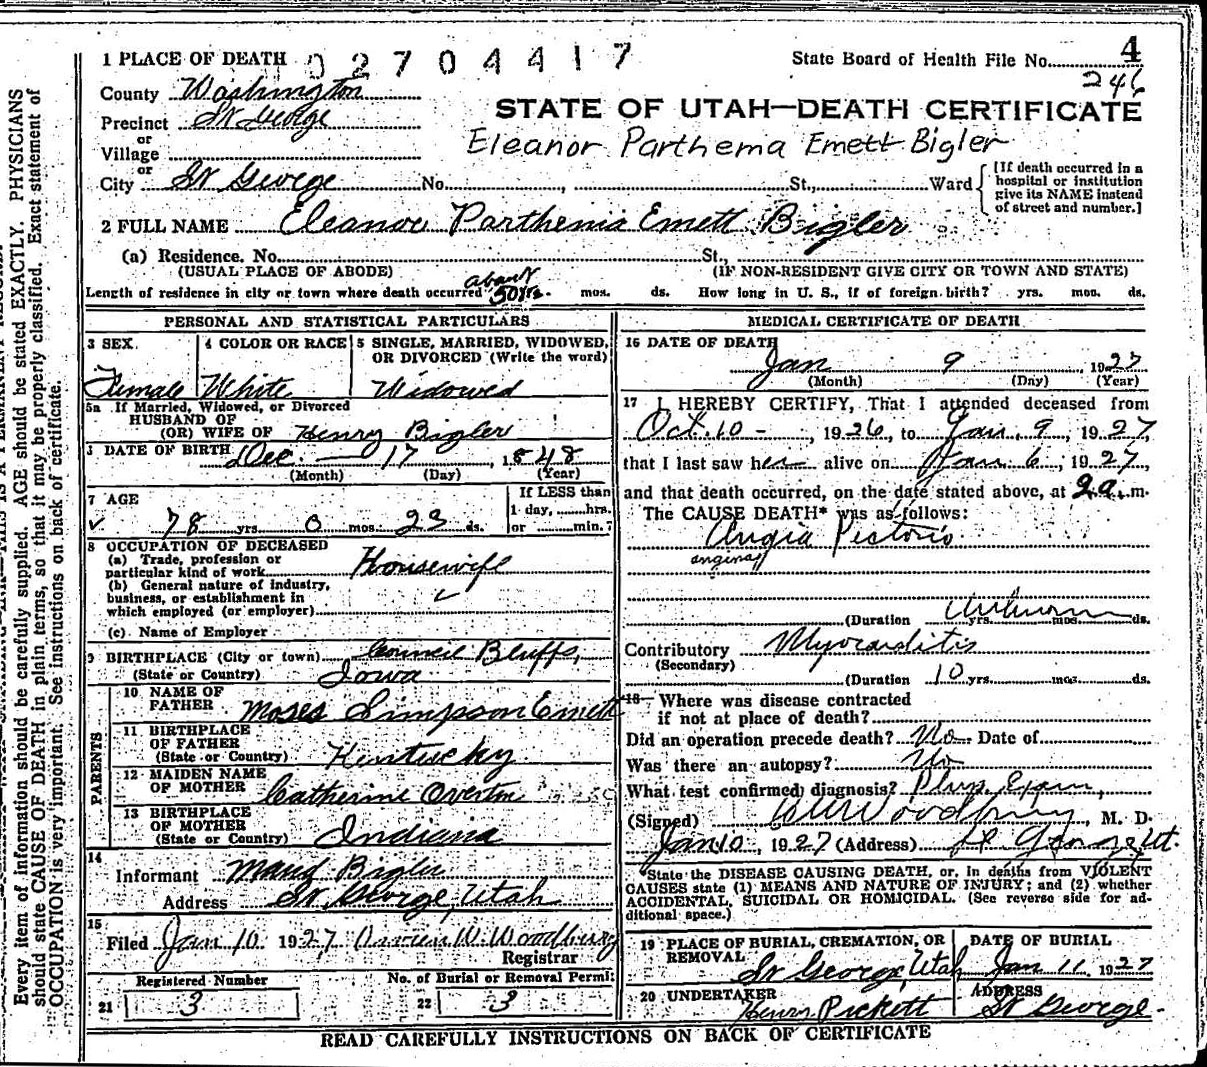 1 PLACE OF DEATH 02704417 State Board of Health File No. 4
246
County Washington
STATE OF UTAH—DEATH CERTIFICATE
Precinct St George
or
Village
Eleanor Parthema Emett Bigler
or
City St George No. , St., Ward
[If death occurred in a
hospital or institution
give its NAME instead
of street and number.]
2 FULL NAME Eleanor Parthenia Emett Bigler
(a) Residence. No. St.,
(USUAL PLACE OF ABODE) (IF NON-RESIDENT GIVE CITY OR TOWN AND STATE)
Length of residence in city or town where death occurred about 50 yrs. mos. ds. How long in U. S., if of foreign birth? yrs. mos. ds.
PERSONAL AND STATISTICAL PARTICULARS
3 SEX 4 COLOR OR RACE 5 SINGLE, MARRIED, WIDOWED,
OR DIVORCED (Write the word)
Female White Widowed
5a If Married, Widowed, or Divorced
HUSBAND OF
(OR) WIFE OF Henry Bigler
DATE OF BIRTH Dec. — 17, 1848
(Month) (Day) (Year)
7 AGE If LESS than
1 day, hrs.
✓ 78 yrs 0 mos. 23 ds. or min.?
8 OCCUPATION OF DECEASED
(a) Trade, profession or
particular kind of work Housewife
(b) General nature of industry,
business, or establishment in
which employed (or employer) ✓
(c) Name of Employer
9 BIRTHPLACE (City or town) Council Bluffs,
(State or Country) Iowa
PARENTS
10 NAME OF
FATHER Moses Simpson Emett
11 BIRTHPLACE
OF FATHER
(State or Country) Kentucky
12 MAIDEN NAME
OF MOTHER Catherine Overton
13 BIRTHPLACE
OF MOTHER
(State or Country) Indiana
14
Informant Maud Bigler
Address St. George, Utah
15
Filed Jan 10 1927 W. Woodbury
Registrar
Registered Number No. of Burial or Removal Permit
21 3 22 3
MEDICAL CERTIFICATE OF DEATH
16 DATE OF DEATH
Jan 9, 1927
(Month) (Day) (Year)
17 I HEREBY CERTIFY, That I attended deceased from
Oct. 10 -, 1926, to Jan. 9, 1927,
that I last saw her alive on Jan 6, 1927,
and that death occurred, on the date stated above, at 2 a.m.
The CAUSE DEATH* was as follows:
Angia Pectoris
angina
(Duration Unknown yrs. mos. ds.
Contributory Myocarditis
(Secondary)
(Duration 10 yrs. mos. ds.
18 Where was disease contracted
if not at place of death?
Did an operation precede death? No. Date of
Was there an autopsy? No
What test confirmed diagnosis? Phys. Exam,
(Signed) Woodbury, M. D.
Jan 10, 1927 (Address) St. George Ut.
*State the DISEASE CAUSING DEATH, or, in deaths from VIOLENT
CAUSES state (1) MEANS AND NATURE OF INJURY; and (2) whether
ACCIDENTAL, SUICIDAL OR HOMICIDAL. (See reverse side for ad-
ditional space.)
19 PLACE OF BURIAL, CREMATION, OR
REMOVAL
St George, Utah
DATE OF BURIAL
Jan 11 1927
20 UNDERTAKER
Henry Pickett
ADDRESS
St George.
READ CAREFULLY INSTRUCTIONS ON BACK OF CERTIFICATE
Every item of information should be carefully supplied. AGE should be stated EXACTLY. PHYSICIANS
should state CAUSE OF DEATH in plain terms, so that it may be properly classified. Exact statement of
OCCUPATION is very important. See instructions on back of certificate.